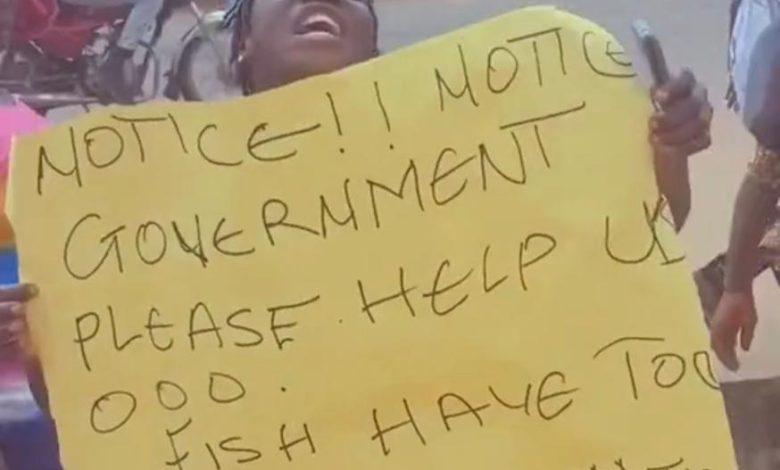 NOTICE!! NOTICE
GOVERNMENT
PLEASE. HELP US
OOO.
FISH HAVE TOO